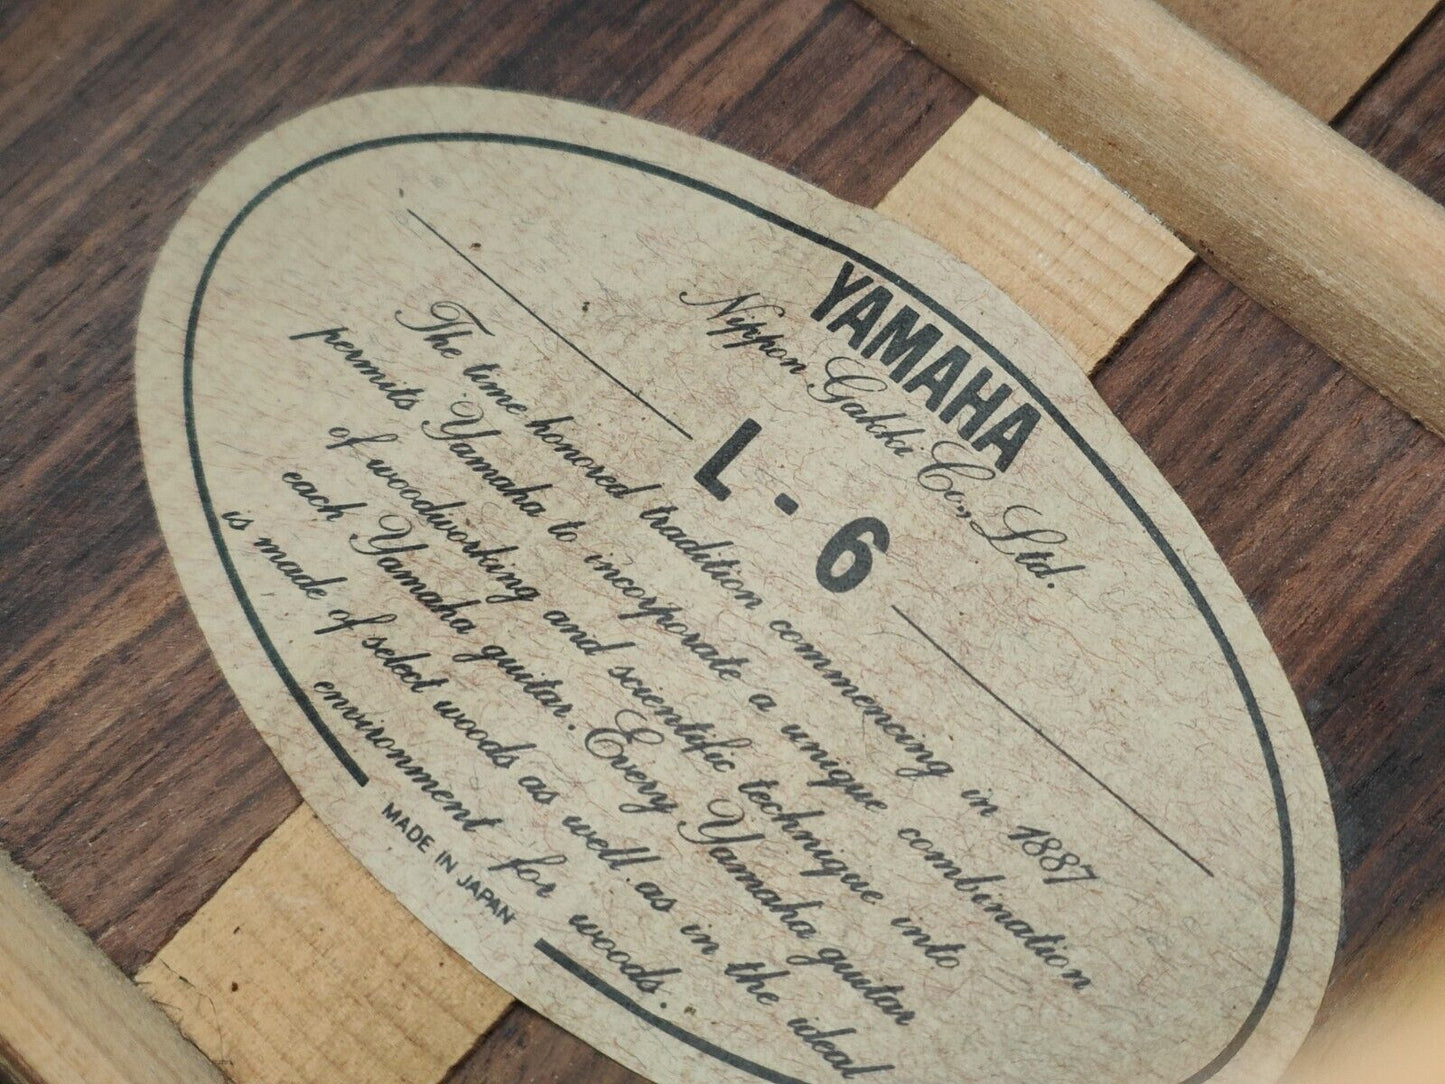 YAMAHA
Nippon Gakki Co., Ltd.
L - 6
The time honored tradition commencing in 1887
permits Yamaha to incorporate a unique combination
of woodworking and scientific technique into
each Yamaha guitar. Every Yamaha guitar
is made of select woods as well as in the ideal
environment for woods.
MADE IN JAPAN